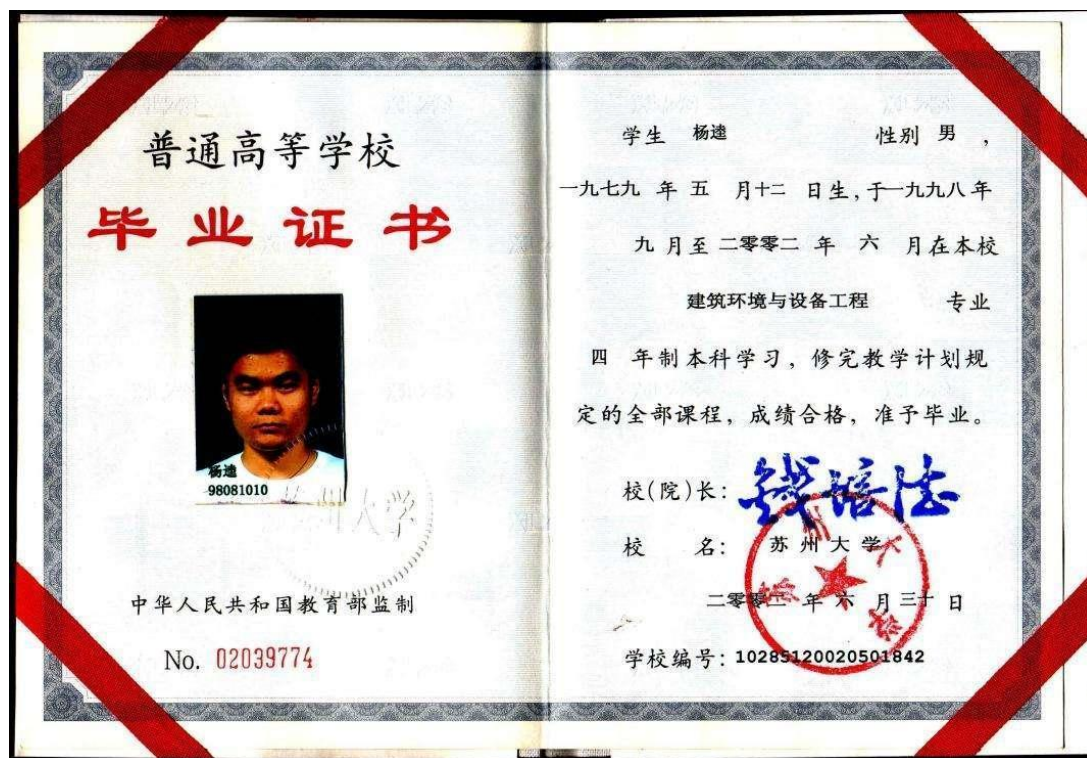 普通高等学校
毕业证书
杨逵
98081010
州大学
中华人民共和国教育部监制
No. 02039774
学生 杨逵 性别 男，
一九七九 年 五 月十二 日生，于一九九八年
九 月至 二零零二 年 六 月在本校
建筑环境与设备工程 专业
四 年制本科学习，修完教学计划规
定的全部课程，成绩合格，准予毕业。
校(院)长： 钱培德
校 名： 苏州大学
二零零二 年 六 月 三十 日
学校编号：10285120020501842